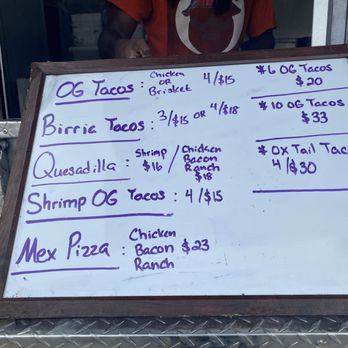 OG Tacos : Chicken OR Brisket 4/$15
Birria Tacos : 3/$15 OR 4/$18
Quesadilla : Shrimp $16 / Chicken Bacon Ranch $18
Shrimp OG Tacos : 4/$15
Mex Pizza : Chicken Bacon Ranch $23
* 6 OG Tacos
$20
* 10 OG Tacos
$33
* OX Tail Tac
4/$30